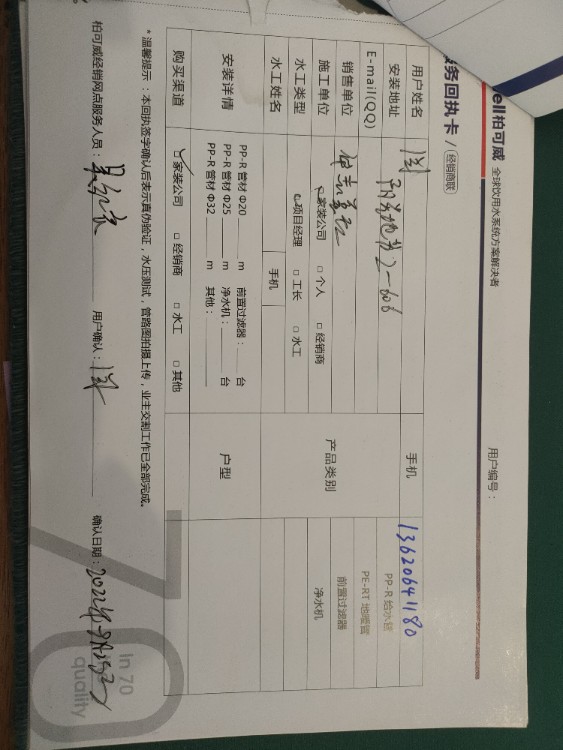 ell 柏可威 全球饮用水系统方案解决者
务回执卡 / 经销商联
用户编号：
用户姓名 手机 13620641180
安装地址 2-606 PP-R 给水管
E-mail(QQ) 产品类别 PE-RT 地暖管
销售单位 前置过滤器
施工单位 家装公司 □ 个人 □ 经销商 净水机
水工类型 项目经理 □ 工长 □ 水工
水工姓名 手机
安装详情 PP-R 管材 Φ20 ____ m 前置过滤器：____ 台 户型
PP-R 管材 Φ25 ____ m 净水机：____ 台
PP-R 管材 Φ32 ____ m 其他：____
购买渠道 家装公司 □ 经销商 □ 水工 □ 其他
* 温馨提示：本回执签字确认后表示真伪验证，水压测试，管路图拍摄上传，业主交割工作已全部完成。
柏可威经销网点服务人员： 用户确认： 确认日期：2022年
70
In 70
quality